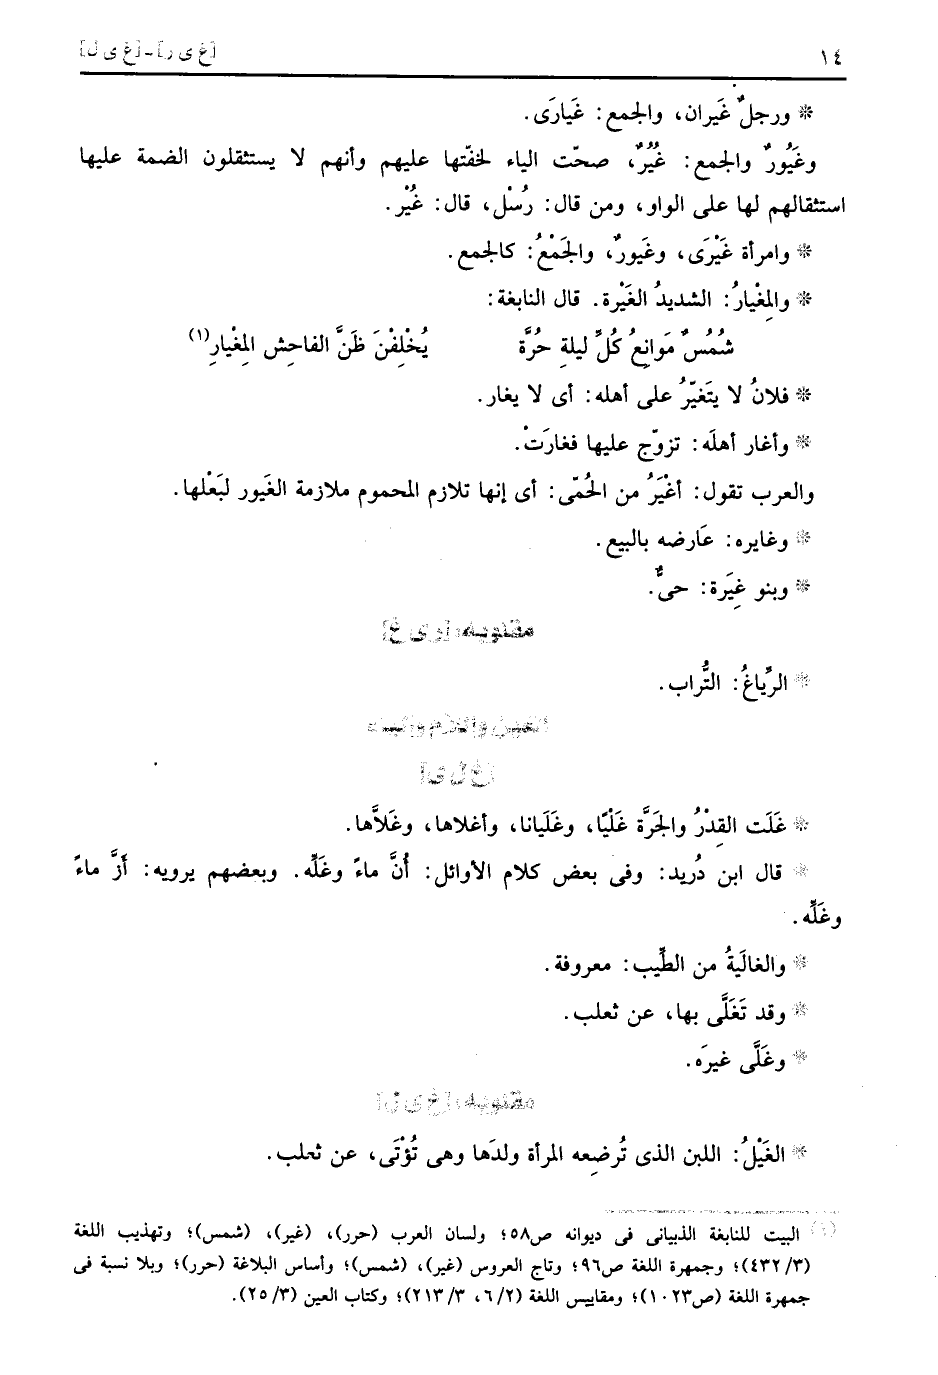 ١٤ [غ ى ر] ـ [غ ى ل]
* ورجلٌ غَيران، والجمع: غَيارَى.
وغَيُورٌ والجمع: غُيُرٌ، صحّت الياء لخفّتها عليهم وأنهم لا يستثقلون الضمة عليها
استثقالهم لها على الواو، ومن قال: رُسْل، قال: غُيْر.
* وامرأة غَيْرَى، وغَيورٌ، والجَمْعُ: كالجمع.
* والمِغْيارُ: الشديدُ الغَيْرة. قال النابغة:
شُمُسٌ مَوانِعُ كُلِّ ليلةِ حُرَّة يُخْلِفْنَ ظَنَّ الفاحِش المِغْيارِ(١)
* فلانُ لا يتَغيّرُ على أهله: أى لا يغار.
* وأغار أهلَه: تزوّج عليها فغارَتْ.
والعرب تقول: أغْيَرُ من الحُمّى: أى إنها تلازم المحموم ملازمة الغَيور لبَعْلها.
* وغايره: عَارضه بالبيع.
* وبنو غِيَرة: حىٌّ.
مقلوبه: [ر ى غ]
* الرِّياغُ: التُّراب.
الغين واللام والياء
[غ ل ى]
* غَلَت القِدْرُ والجَرَّة غَلْيًا، وغَلَيانا، وأغلاها، وغَلاَّها.
* قال ابن دُريد: وفى بعض كلام الأوائل: أُنَّ ماءً وغَلِّه. وبعضهم يرويه: أَزَّ ماءً
وغَلِّه.
* والغالَيةُ من الطِّيب: معروفة.
* وقد تَغَلَّى بها، عن ثعلب.
* وغَلَّى غيرَه.
مقلوبه: [غ ى ل]
* الغَيْلُ: اللبن الذى تُرضِعه المرأة ولدَها وهى تُؤْتَى، عن ثعلب.
(١) البيت للنابغة الذبيانى فى ديوانه ص٥٨؛ ولسان العرب (حرر)، (غير)، (شمس)؛ وتهذيب اللغة
(٤٣٢/٣)؛ وجمهرة اللغة ص٩٦؛ وتاج العروس (غير)، (شمس)؛ وأساس البلاغة (حرر)؛ وبلا نسبة فى
جمهرة اللغة (ص١٠٢٣)؛ ومقاييس اللغة (٦/٢، ٢١٣/٣)؛ وكتاب العين (٢٥/٣).